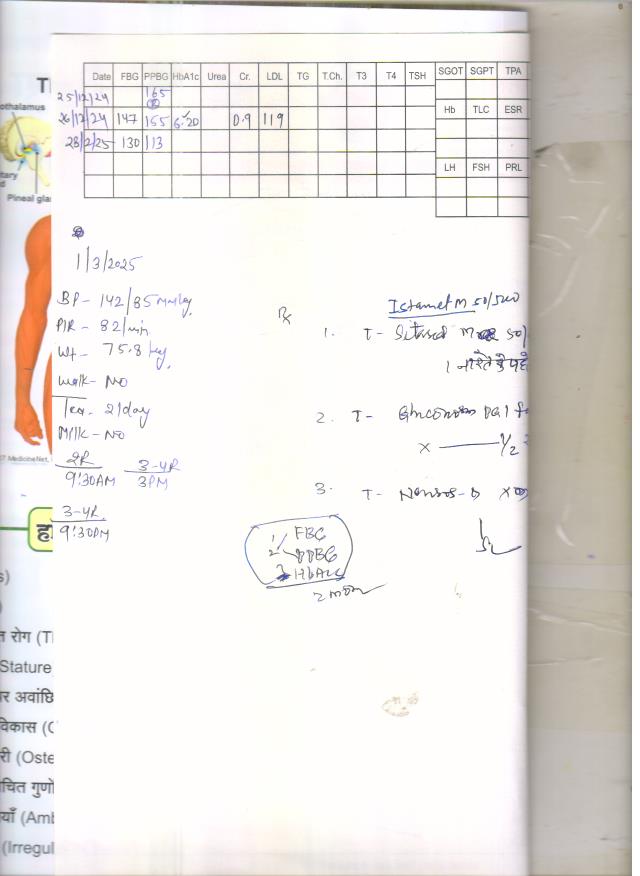 T
othalamus
tary
d
Pineal gla
Date FBG PPBG HbA1c Urea Cr. LDL TG T.Ch. T3 T4 TSH SGOT SGPT TPA
25/12/24 165
26/12/24 147 155 6.20 0.9 119
Hb TLC ESR
28/2/25 130 113
LH FSH PRL
1/3/2025
BP - 142/85 mmHg
P/R - 82/min
Wt - 75.8 kg
Walk - NO
Tea - 2/day
Milk - NO
2R 3-4R
9:30AM 3PM
3-4R
9:30PM
MedicineNet,
Rx
Istamet M 50/500
1. T-
1
2. T-
x 1/2
3. T-
1 FBG
2 PPBG
3 HbA1c
हा
s)
)
त रोग (T
Stature
र अवांछि
विकास (C
री (Oste
चित गुणो
याँ (Aml
(Irregul